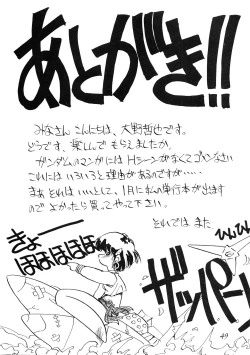 あとがき!!
みなさん こんにちは、大野哲也です。
どうです、楽しんで もらえましたか。
ガンダムのマンガには Hシーンがなくてゴメンなさい
これには いろいろと理由があるのですが……
まあ それは いいとして、1月に私の単行本が出ます
ので よかったら買ってやって下さい。
それでは また
きょー
ほほほほほ
ひぃぃぃ
ザッパーン
49